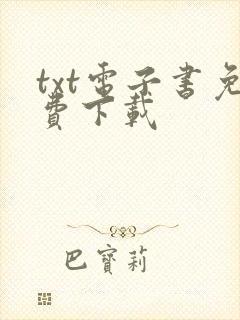 txt電子書免
費下載
巴寶莉